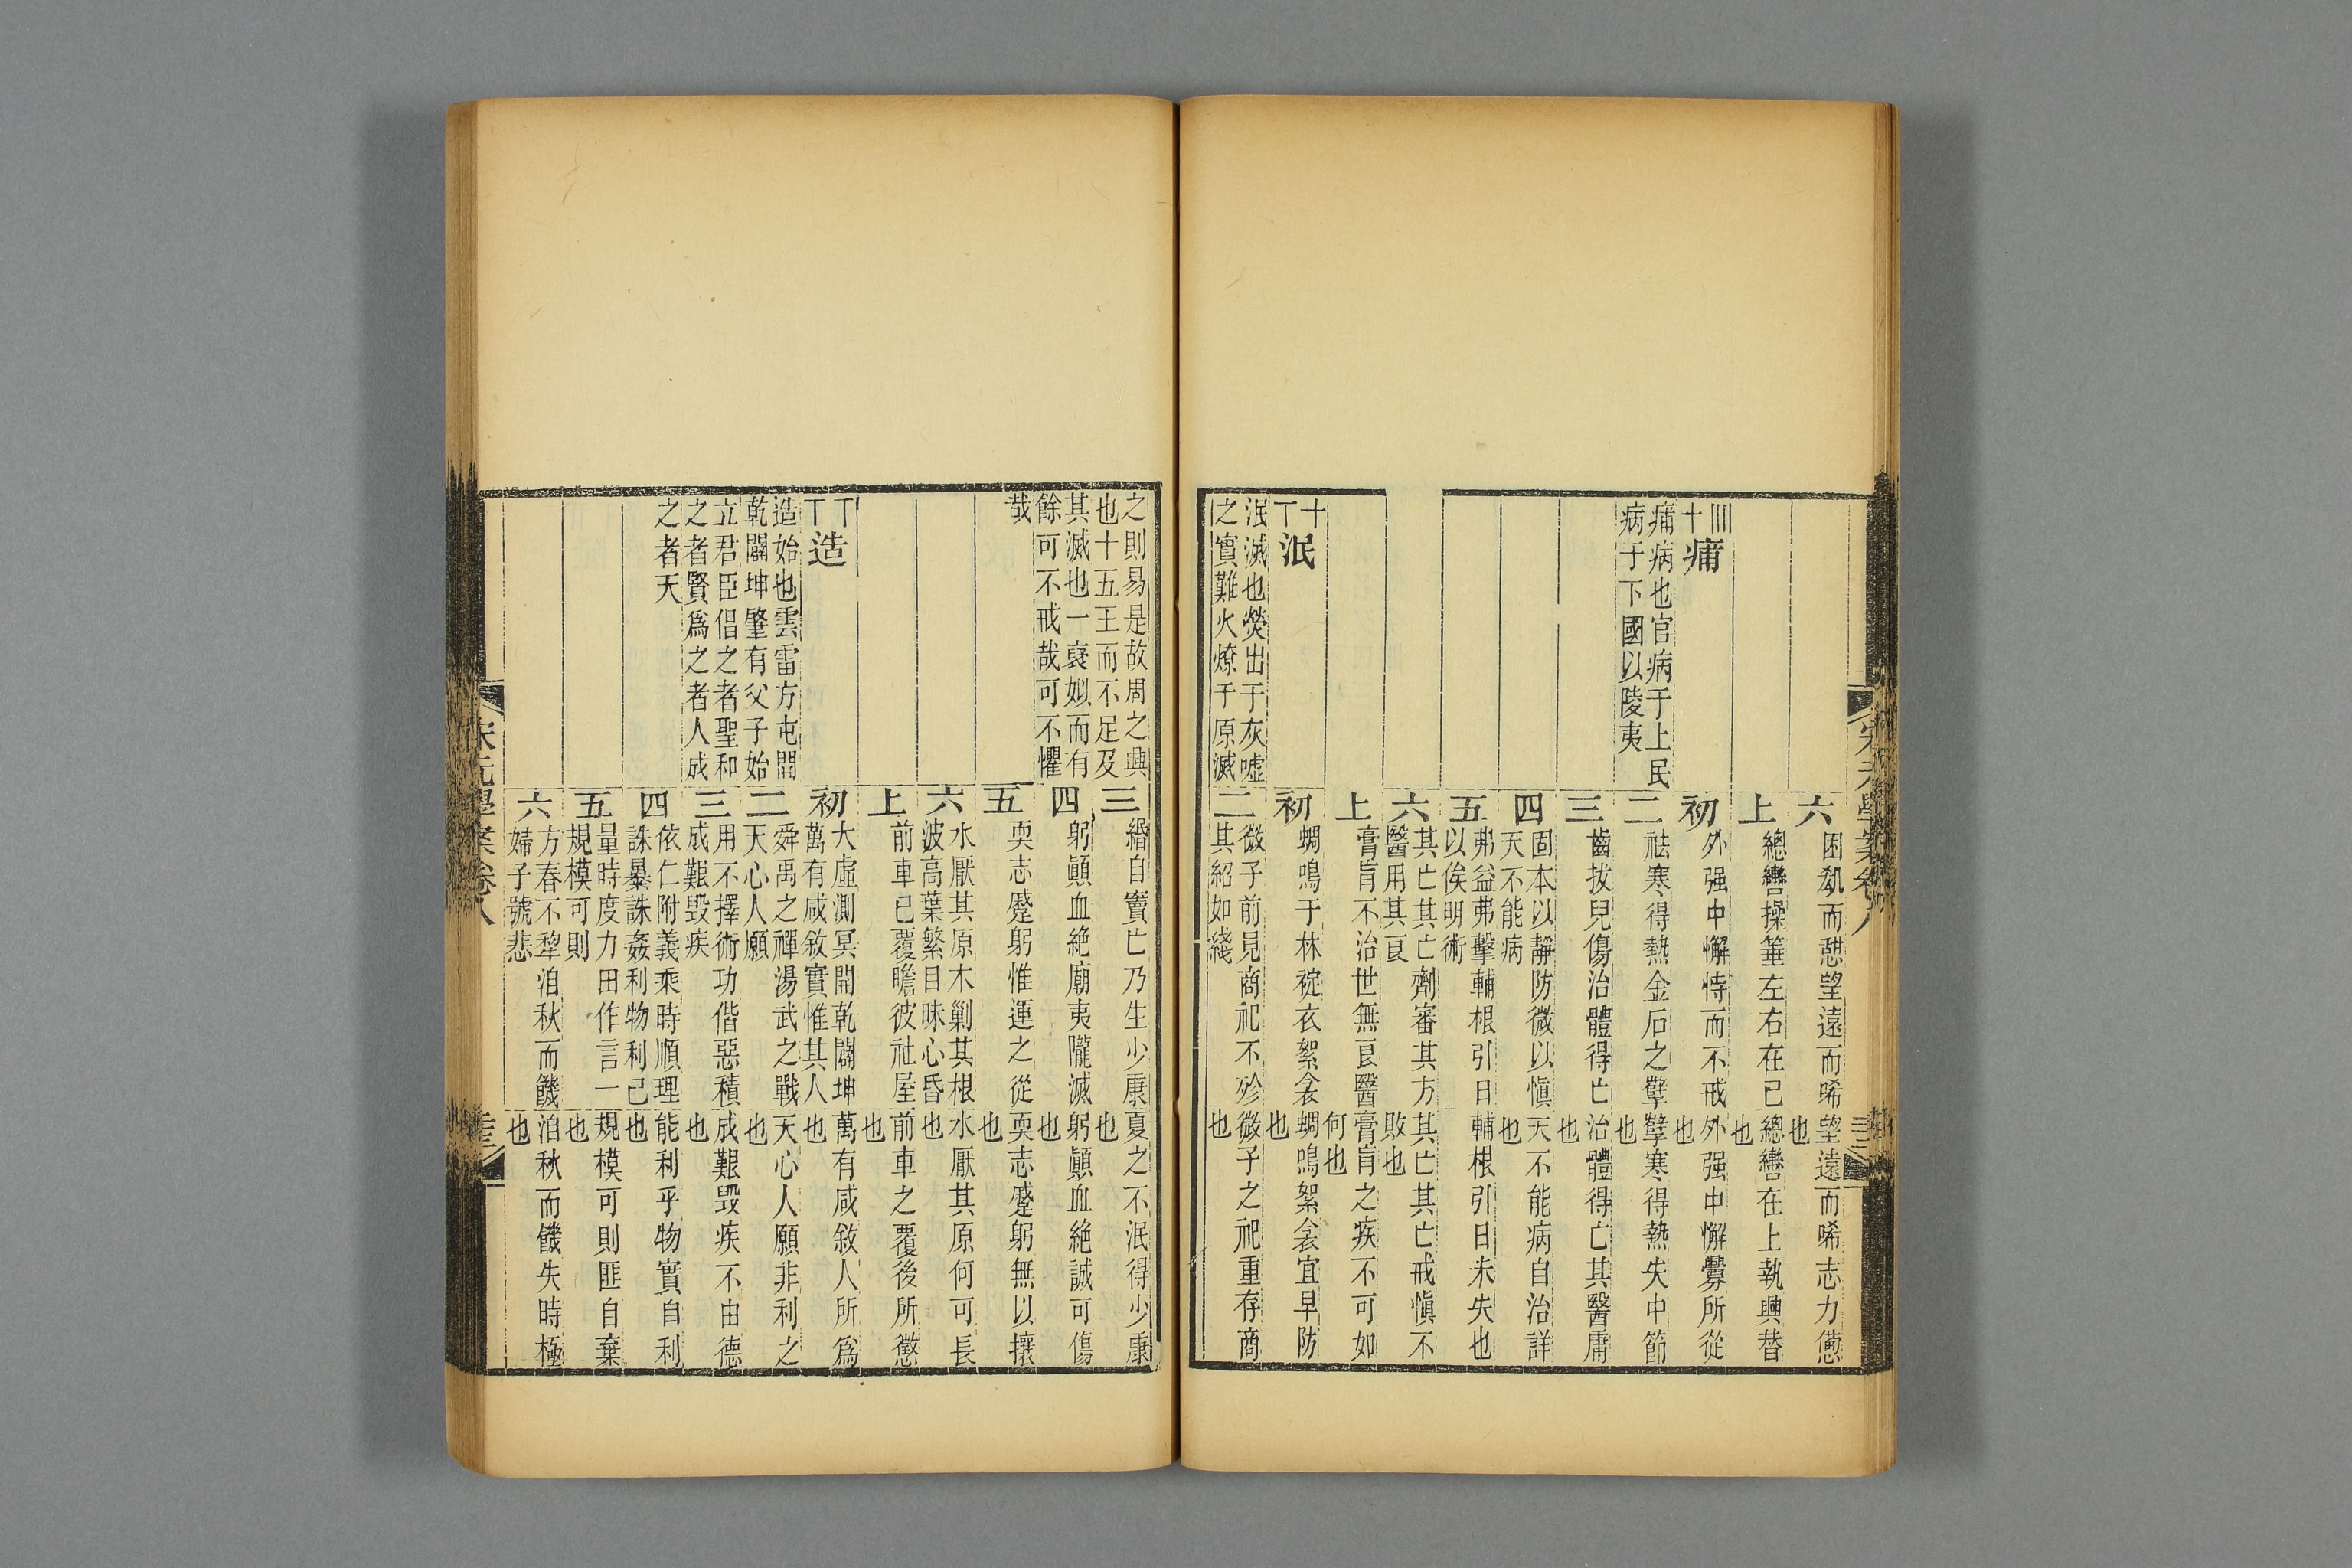 六
困劾而憇望遠而晞
望遠而晞志力憊
也
上
總轡操箠左右在己
總轡在上執輿替
也
𝍤十 痡
痡病也官病于上民
病于下國以陵夷
初
外强中懈恃而不戒
外强中懈釁所從
也
二
祛寒得熱金石之孽
孽寒得熱失中節
也
三
齒拔兒傷治體得亡
治體得亡其醫庸
也
四
固本以靜防微以愼
天不能病
天不能病自治詳
也
五
弗益弗擊輔根引日
以俟明術
輔根引日未失也
六
其亡其亡劑審其方
醫用其良
其亡其亡戒愼不
敗也
上
膏肓不治世無良醫
膏肓之疾不可如
何也
十丅 泯
泯滅也熒出于灰嘘
之實難火燎于原滅
初
蜩鳴于林䘺衣絮衾
蜩鳴絮衾宜早防
也
二
微子前見商祀不殄
其紹如綫
微子之祀重存商
也
之則易是故周之興
也十五王而不足及
其滅也一襃姒而有
餘可不戒哉可不懼
哉
三
緡自竇亡乃生少康
夏之不泯得少康
也
四
躬顚血絶廟夷隴滅
躬顚血絶誠可傷
也
五
耎志蹙躬惟運之從
耎志蹙躬無以攘
也
六
水厭其原木剿其根
波高葉繁目昧心昏
水厭其原何可長
也
上
前車已覆瞻彼社屋
前車之覆後所懲
也
丅丅 造
造始也雲雷方屯開
乾闢坤肇有父子始
立君臣倡之者聖和
之者賢爲之者人成
之者天
初
大虛測冥開乾闢坤
萬有咸敘實惟其人
萬有咸敘人所爲
也
二
舜禹之禪湯武之戰
天心人願
天心人願非利之
也
三
用不擇術功偕惡積
成艱毀疾
成艱毀疾不由德
也
四
依仁附義乘時順理
誅暴誅姦利物利己
能利乎物實自利
也
五
量時度力田作言一
規模可則
規模可則匪自棄
也
六
方春不犂洎秋而饑
婦子號悲
洎秋而饑失時極
也
宋元學案卷八